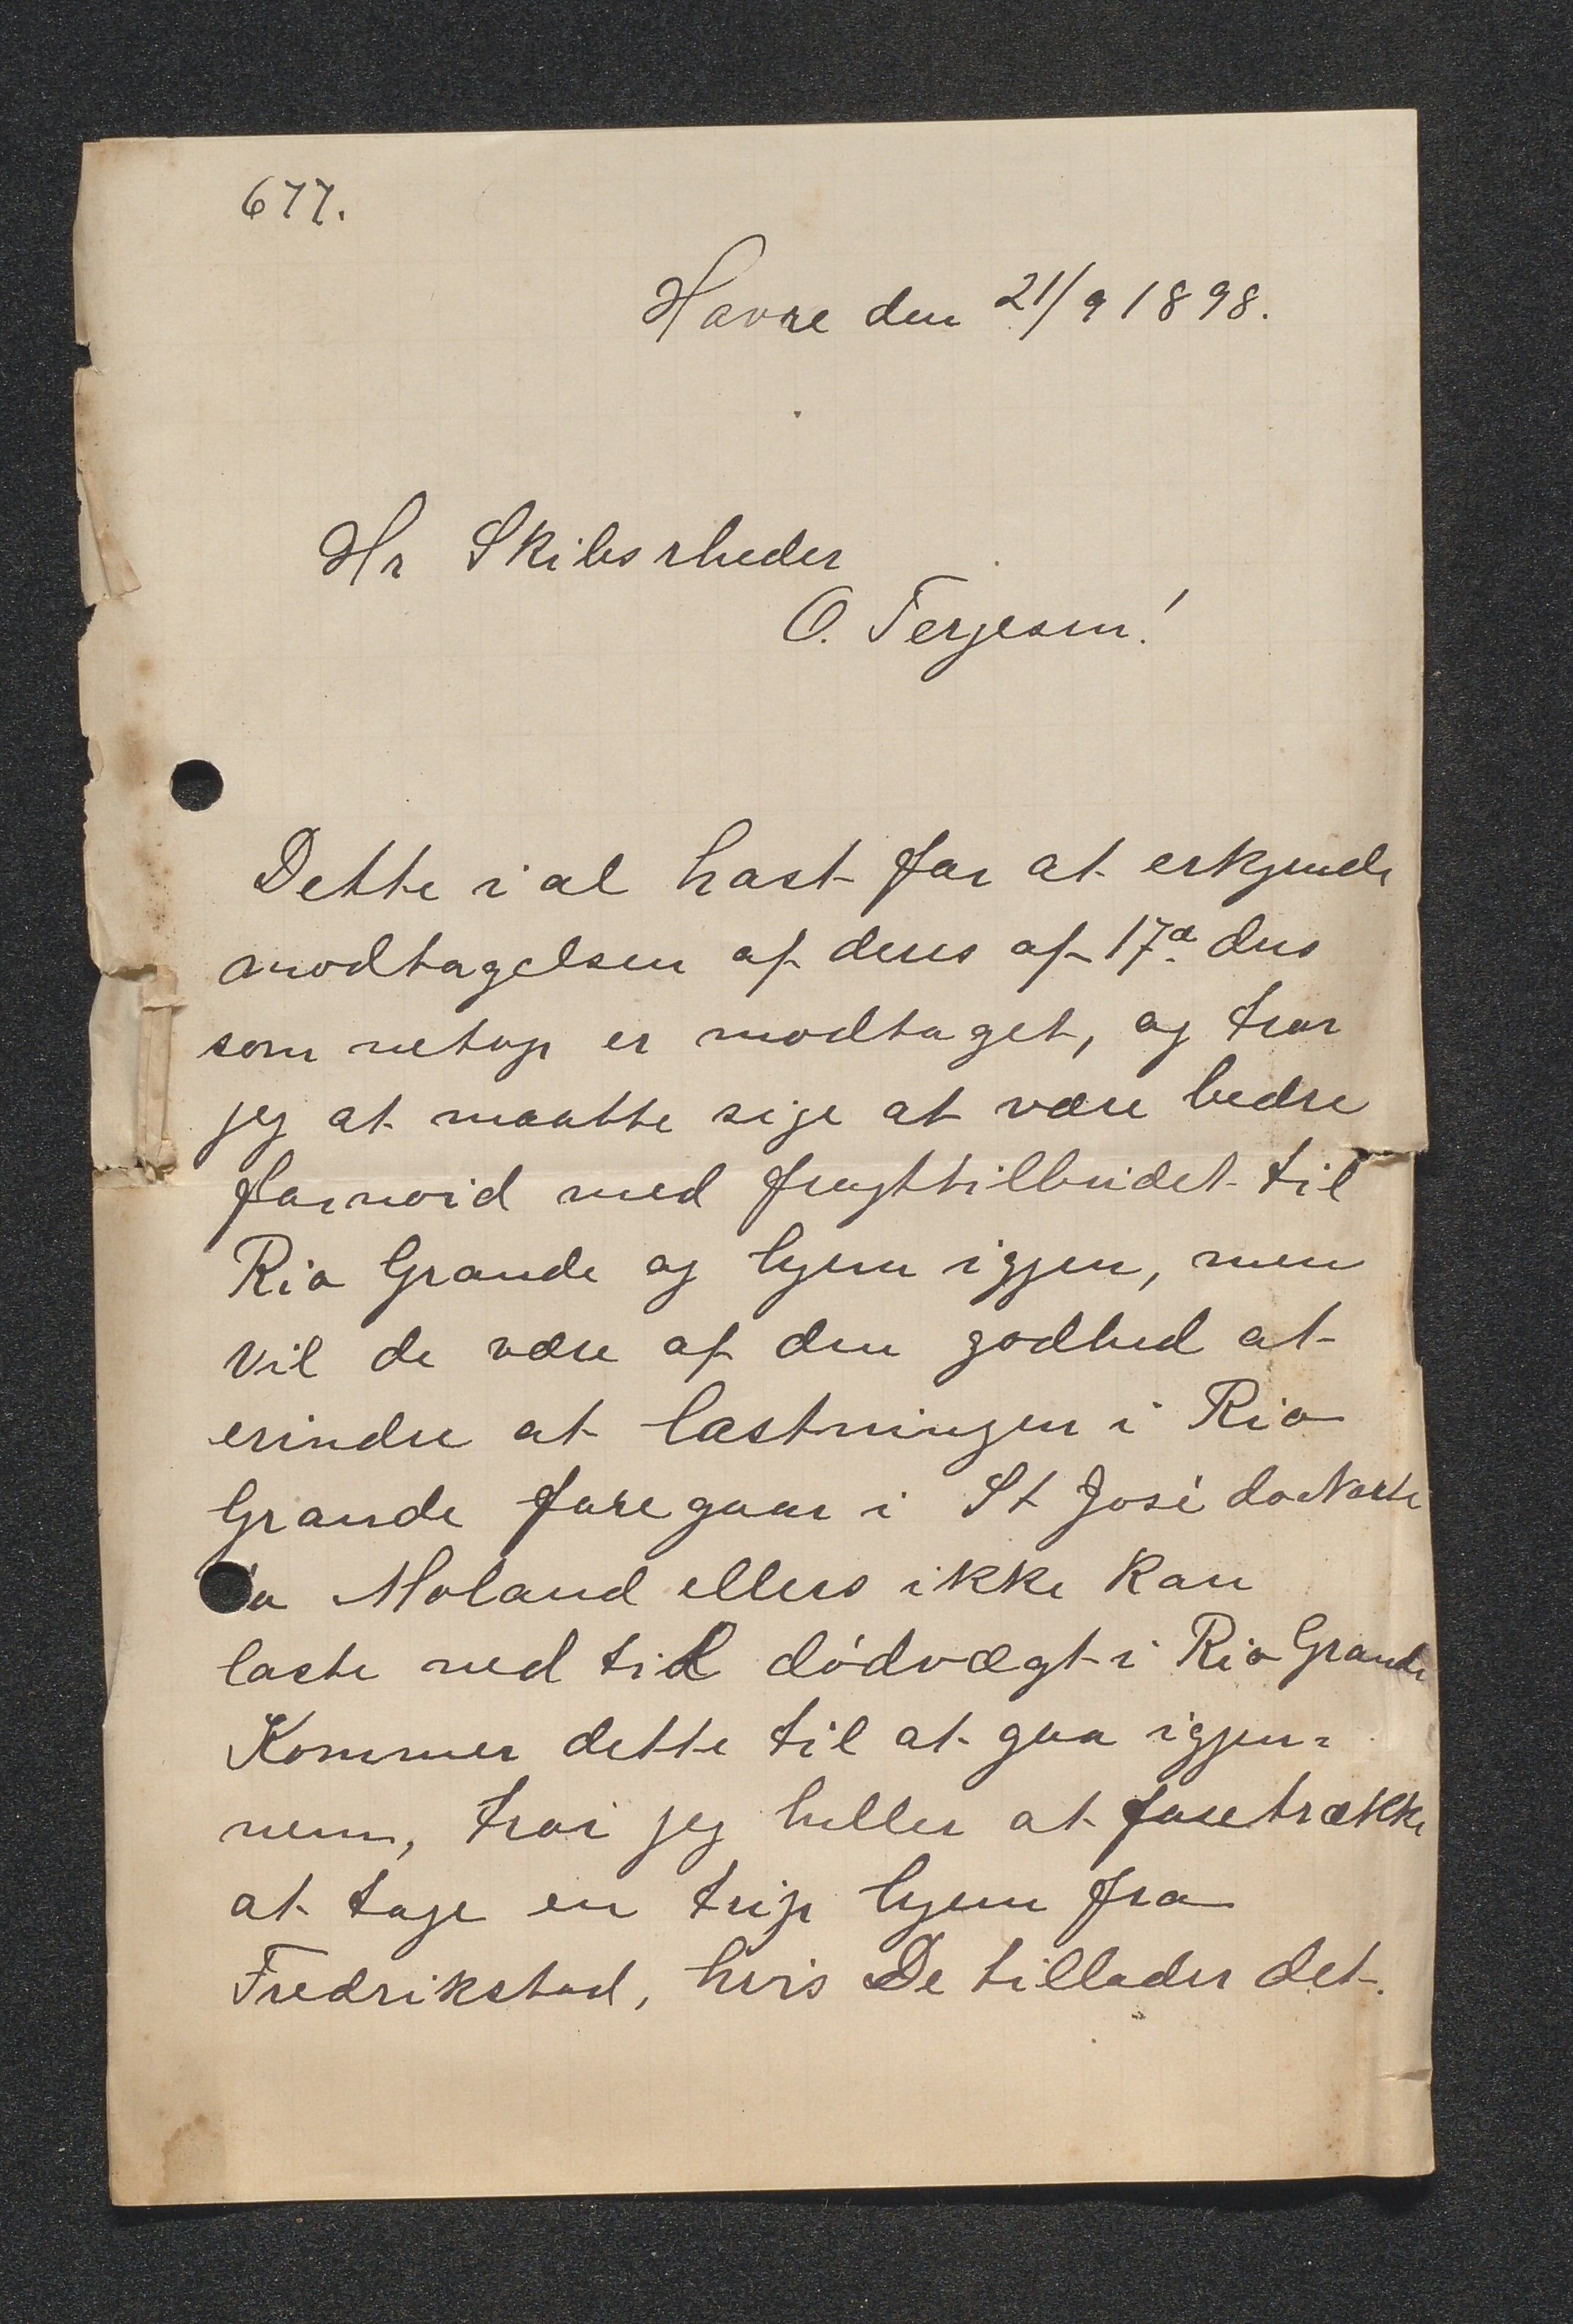 677.
Havre den 21/9 1898.
Hr Skibsrheder
O. Terjesen!
Dette i al hast for at erkjende
modtagelsen af deres af 17d. dns
som netop er modtaget, og tror
jeg at maatte sige at være bedre
fornøid med fragttilbudet til
Rio Grande og hjem igjen, men
vil de være af den godhed at
erindre at lastningen i Rio
Grande foregaar i St José do Norte
da Moland ellers ikke kan
laste ned til dödvægt i Rio Grande
Kommer dette til at gaa igjen=
nem, tror jeg heller at foretrække
at tage en trip hjem fra
Fredrikstad, hvis De tillader det.